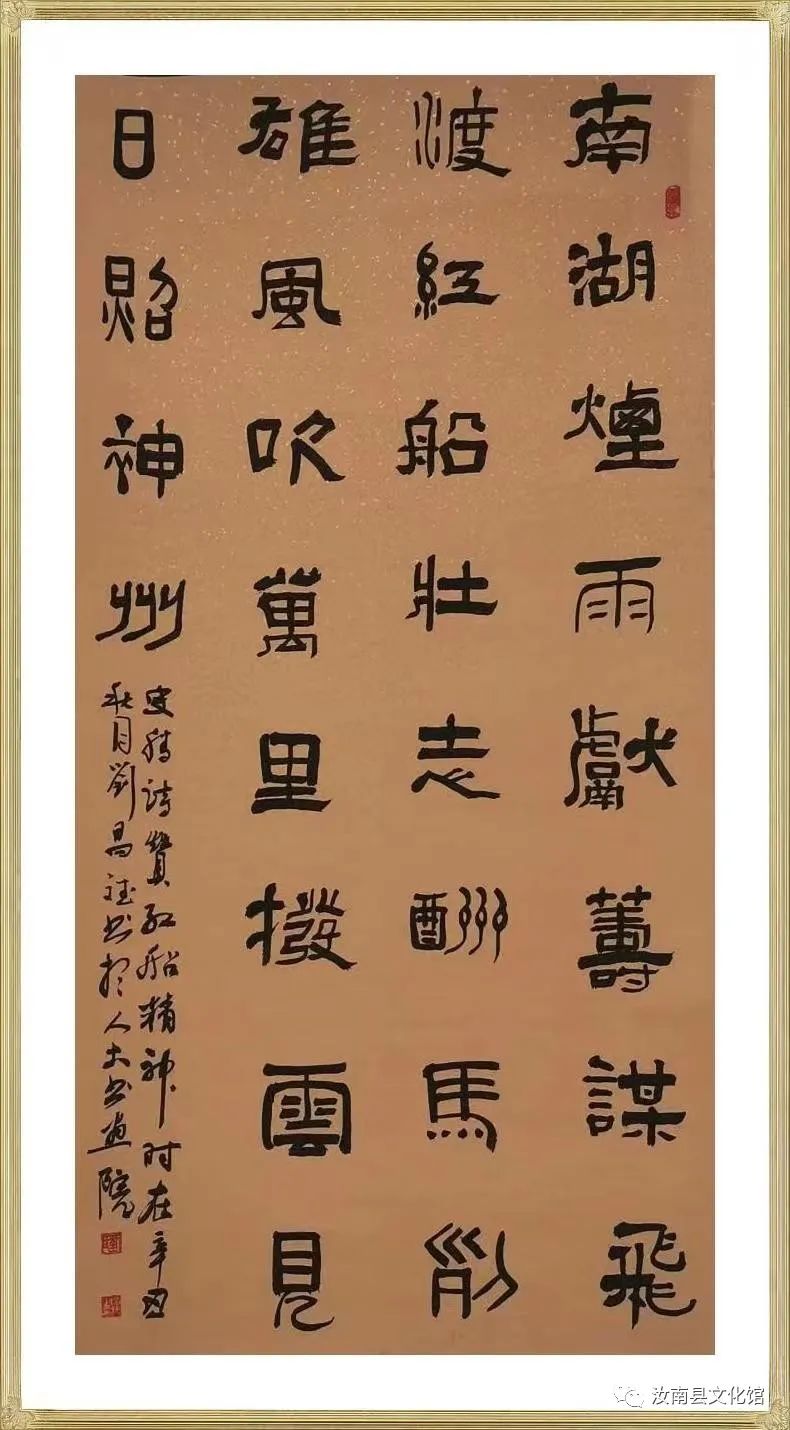 南湖煙雨獻籌謀飛
渡紅船壯志酬馬列
雄風吹萬里撥雲見
日照神州
詩贊红船精神时在辛丑
秋月劉昌书於人大书画院
汝南县文化馆